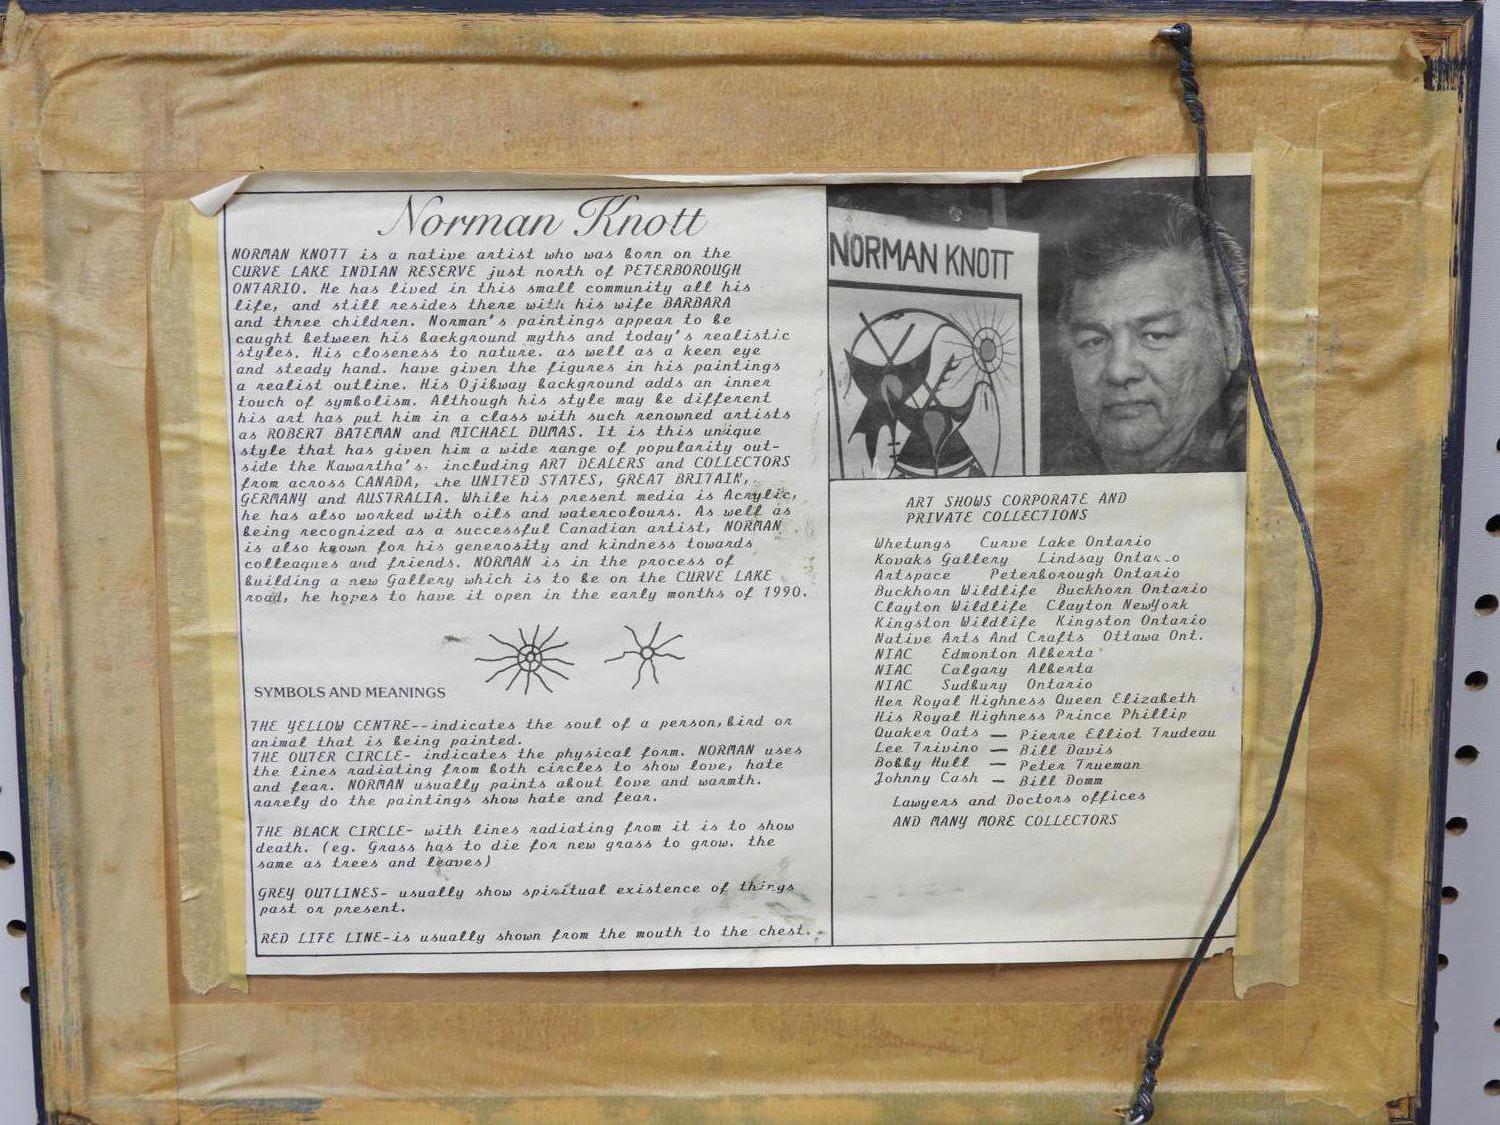 Norman Knott
NORMAN KNOTT is a native artist who was born on the
CURVE LAKE INDIAN RESERVE just north of PETERBOROUGH
ONTARIO. He has lived in this small community all his
life, and still resides there with his wife BARBARA
and three children. Norman's paintings appear to be
caught between his background myths and today's realistic
styles. His closeness to nature. as well as a keen eye
and steady hand. have given the figures in his paintings
a realist outline. His Ojibway background adds an inner
touch of symbolism. Although his style may be different
his art has put him in a class with such renowned artists
as ROBERT BATEMAN and MICHAEL DUMAS. It is this unique
style that has given him a wide range of popularity out-
side the Kawartha's. including ART DEALERS and COLLECTORS
from across CANADA, the UNITED STATES, GREAT BRITAIN,
GERMANY and AUSTRALIA. While his present media is Acrylic,
he has also worked with oils and watercolours. As well as
being recognized as a successful Canadian artist, NORMAN
is also known for his generosity and kindness towards
colleagues and friends. NORMAN is in the process of
building a new Gallery which is to be on the CURVE LAKE
road, he hopes to have it open in the early months of 1990.
SYMBOLS AND MEANINGS
THE YELLOW CENTRE--indicates the soul of a person,bird or
animal that is being painted.
THE OUTER CIRCLE- indicates the physical form. NORMAN uses
the lines radiating from both circles to show love, hate
and fear. NORMAN usually paints about love and warmth.
rarely do the paintings show hate and fear.
THE BLACK CIRCLE- with lines radiating from it is to show
death. (eg. Grass has to die for new grass to grow. the
same as trees and leaves)
GREY OUTLINES- usually show spiritual existence of things
past or present.
RED LIFE LINE-is usually shown from the mouth to the chest.
NORMAN KNOTT
ART SHOWS CORPORATE AND
PRIVATE COLLECTIONS
Whetungs Curve Lake Ontario
Kovaks Gallery Lindsay Ontario
Artspace Peterborough Ontario
Buckhorn Wildlife Buckhorn Ontario
Clayton Wildlife Clayton NewYork
Kingston Wildlife Kingston Ontario
Native Arts And Crafts Ottawa Ont.
NIAC Edmonton Alberta
NIAC Calgary Alberta
NIAC Sudbury Ontario
Her Royal Highness Queen Elizabeth
His Royal Highness Prince Phillip
Quaker Oats — Pierre Elliot Trudeau
Lee Trivino — Bill Davis
Bobby Hull — Peter Trueman
Johnny Cash — Bill Domm
Lawyers and Doctors offices
AND MANY MORE COLLECTORS